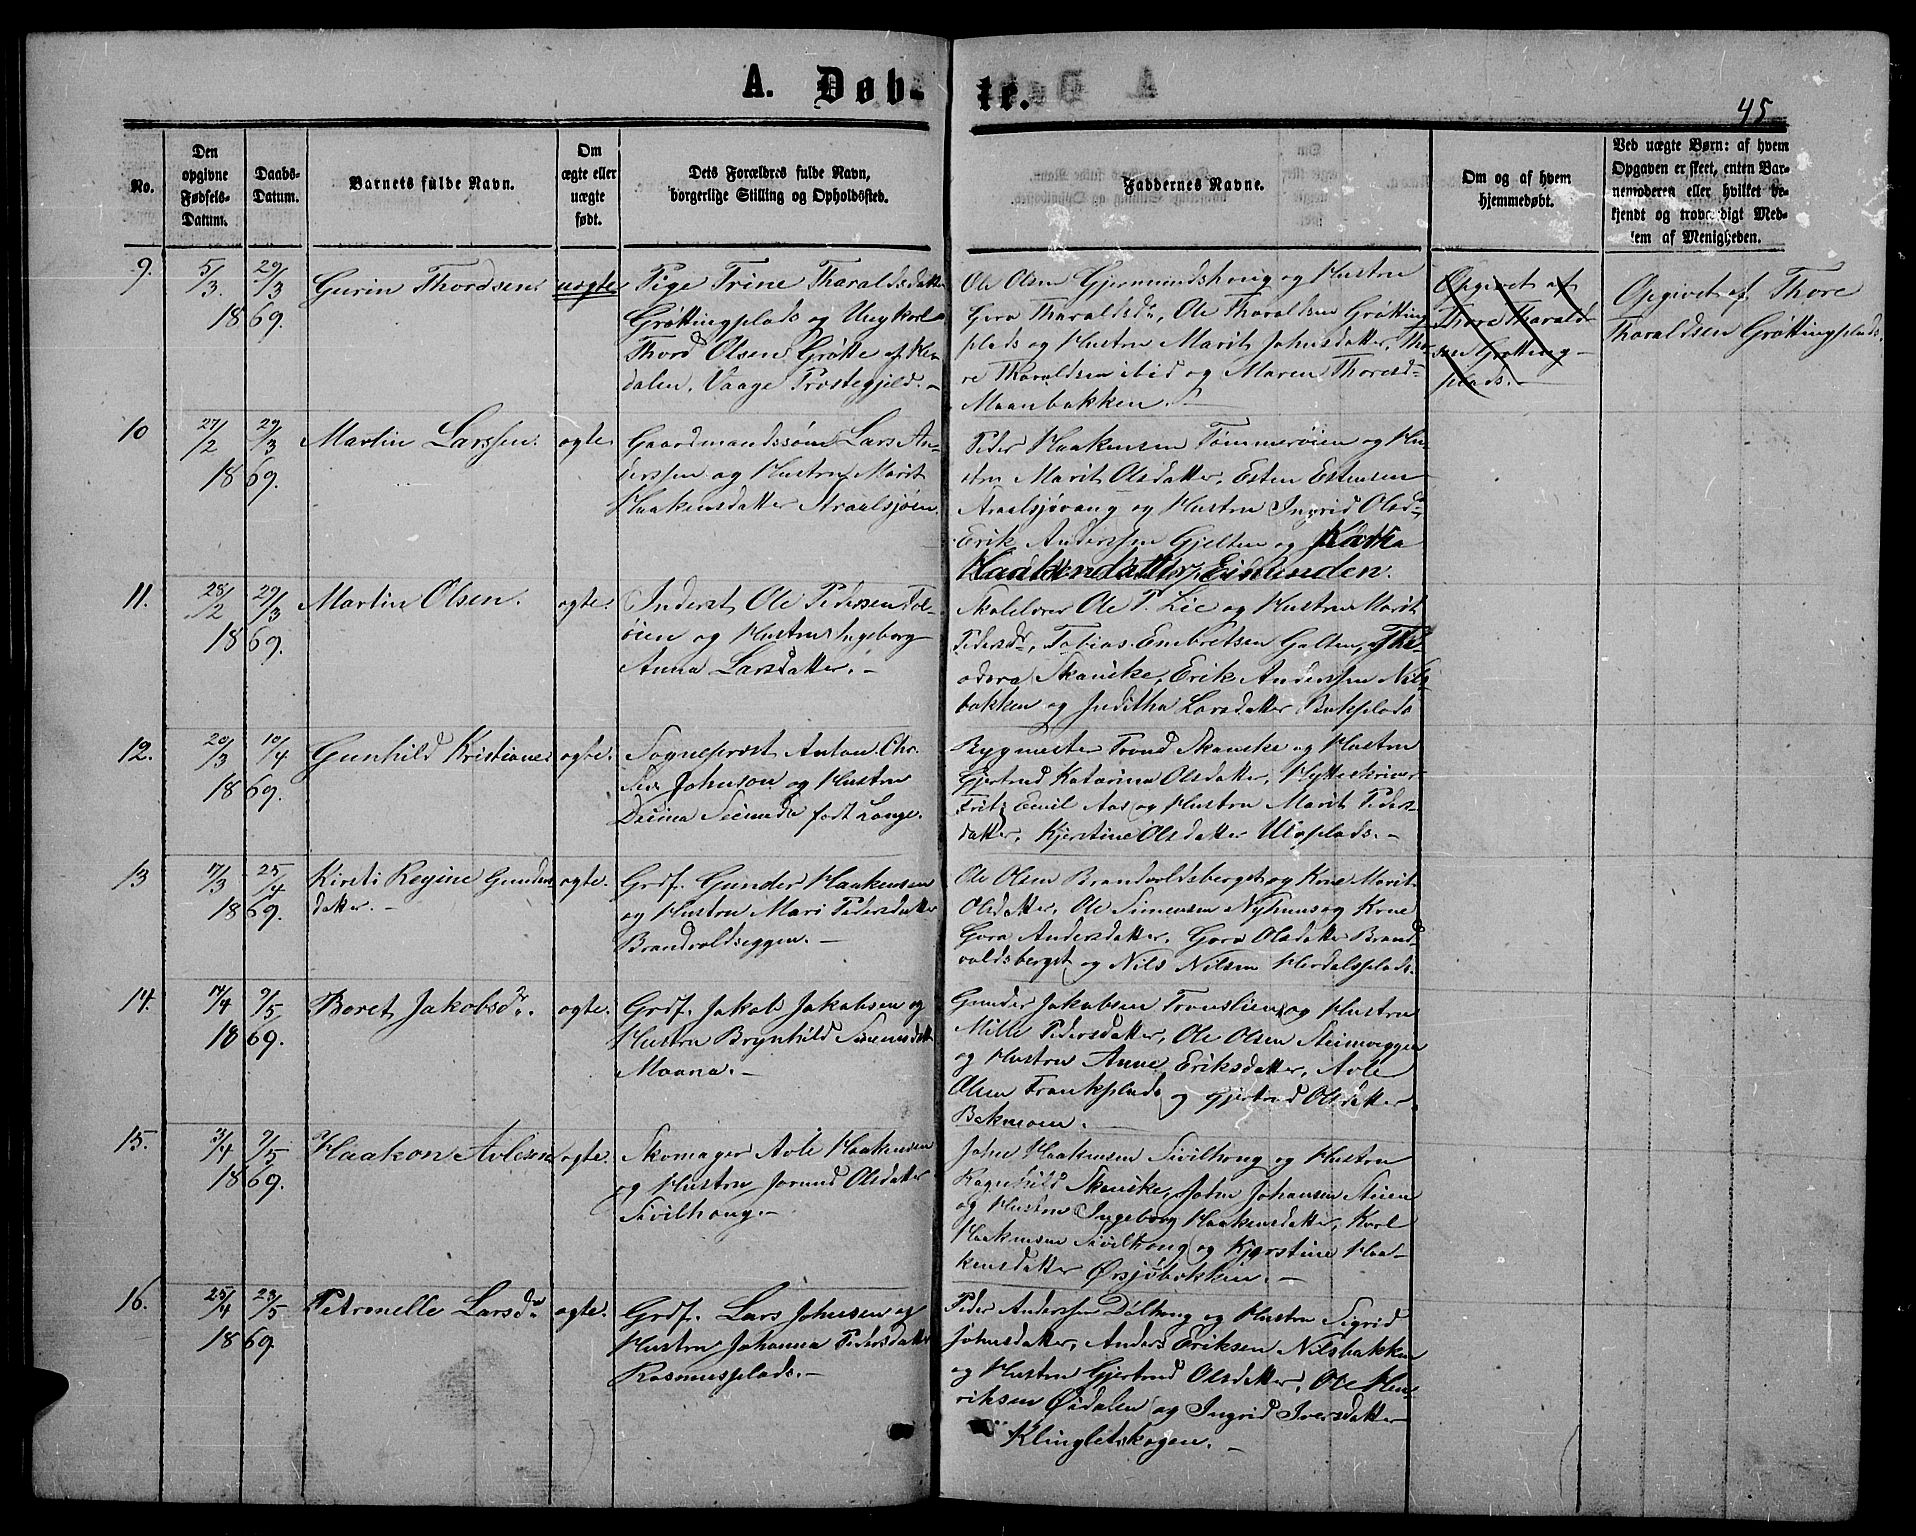 A. Døb- te.
45
No.
Den opgivne Fødsels-Datum.
Daabs-Datum.
Barnets fulde Navn.
Om ægte eller uægte født.
Dets Forældres fulde Navn, borgerlige Stilling og Opholdssted.
Faddernes Navne.
Om og af hvem hjemmedøbt.
Ved uægte Børn: af hvem Opgaven er skeet, enten Barnemoderen eller hvilket bekjendt og troværdigt Medlem af Menigheden.
9. 5/3 29/3 1869. Gurin Thordsen uegte
Pige Trine Tharaldsdatter
Grøttingplads og Ungkarl
Thord Olsen Grøtte af
dalen, Vaage Prestegjeld.-
Ole Olsen Gjermundshoug og Hustru
Gora Tharaldsdr, Ole Tharaldsen Grøtting
plads og Hustru Marit Johnsdatter, Tho-
re Tharaldsen ibid og Maren Thoresd-
Moanbakken.
Opgivet af
Thore Tharald-
sen Grøtting-
plads.-
Opgivet af Thore
Tharaldsen Grøttingplads.
10 27/2 29/3 1869. Martin Larssen. egte.
Gaardmandssøn Lars An-
derssen og Hustru Marit
Haakensdatter Straalsjøen.
Peder Haakensen Tømmerøien og Hu-
stru Marit Olsdatter, Esten Estensen
Araalsjøvang og Hustru Ingrid Olsd-,
Erik Anderssen Gjelten og
Haakensdatter, Eimunden.
11. 28/2 29/3 1869. Martin Olsen. egte.
Inderst Ole Pedersen Tol-
øien og Hustru Ingeborg
Anna Larsdatter.-
Skolelærer Ole P. Lie og Hustru Marit
Pedersdr, Tobias Embretsen Galten, The-
odora Skanske, Erik Anderssen Nils-
bakken og Juditha Larsdatter Bakplads
12. 20/3 10/4 1869. Gunhild Kristiane egte.
Sogneprest Anton Chr.
Johnson og Hustru
født Lange.
Bygmester Trond Skanske og Hustru
Gjertrud Katarina Olsdatter, Hytteskriver
Fritz Emil Aas og Hustru Marit Peders-
datter, Kjerstine Olsdatter Uloplads.-
13 17/3 25/4 1869. Kirsti Regine Gunders-
datter.- egte.
Grdf. Gunder Haakensen
og Hustru Mari Pedersdatter
Brandvoldseggen.-
Ole Olsen Brandvoldsberget og Kone Marit
Olsdatter, Ole Simensen Nyhuus og Kone
Gora Andersdatter, Gora Olsdatter Brand-
voldsberget og Nils Nilsen Herdalsplads.
14. 14/4 9/5 1869. Beret Jakobsdr. egte.
Grdf. Jakob Jakobsen og
Hustru Brynhild Simensdatt
Moana.-
Gunder Jakobsen Tronslien og Hustru
Mille Pedersdatter, Ole Olsen Steimoeggen
og Hustru Anne Eriksdatter, Avle
Olsen Trankplads og Gjertrud Olsdatter
Bekmoen.-
15. 3/4 9/5 1869. Haakon Avlesen egte.
Skomager Avle Haakensen
og Hustru Jorund Olsdatter
Sivilhoug.-
John Haakensen Sivilhoug og Hustru
Ragnhild Skanske, John Johansen Steien
og Hustru Ingeborg Haakensdatter, Karl
Haakensen Sivilhoug og Kjerstine Haa-
kensdatter Ørsjøbakken.-
16. 25/4 23/5 1869. Petronelle Larsdr egte.
Grdf. Lars Johnsen og
Hustru Johanna Pedersdatter
Rasmusplads.-
Peder Anderssen Dølhoug og Hustru Sigrid
Johnsdatter, Anders Eriksen Nilsbakken
og Hustru Gjertrud Olsdatter, Ole Hen-
riksen Øidalen og Ingrid Iversdatter
Klingletskogen.-